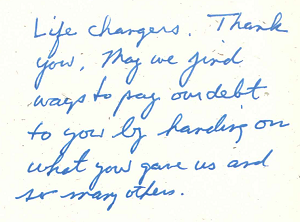 Life changers. Thank
you. May we find
ways to pay our debt
to you by handing on
what you gave us and
so many others.